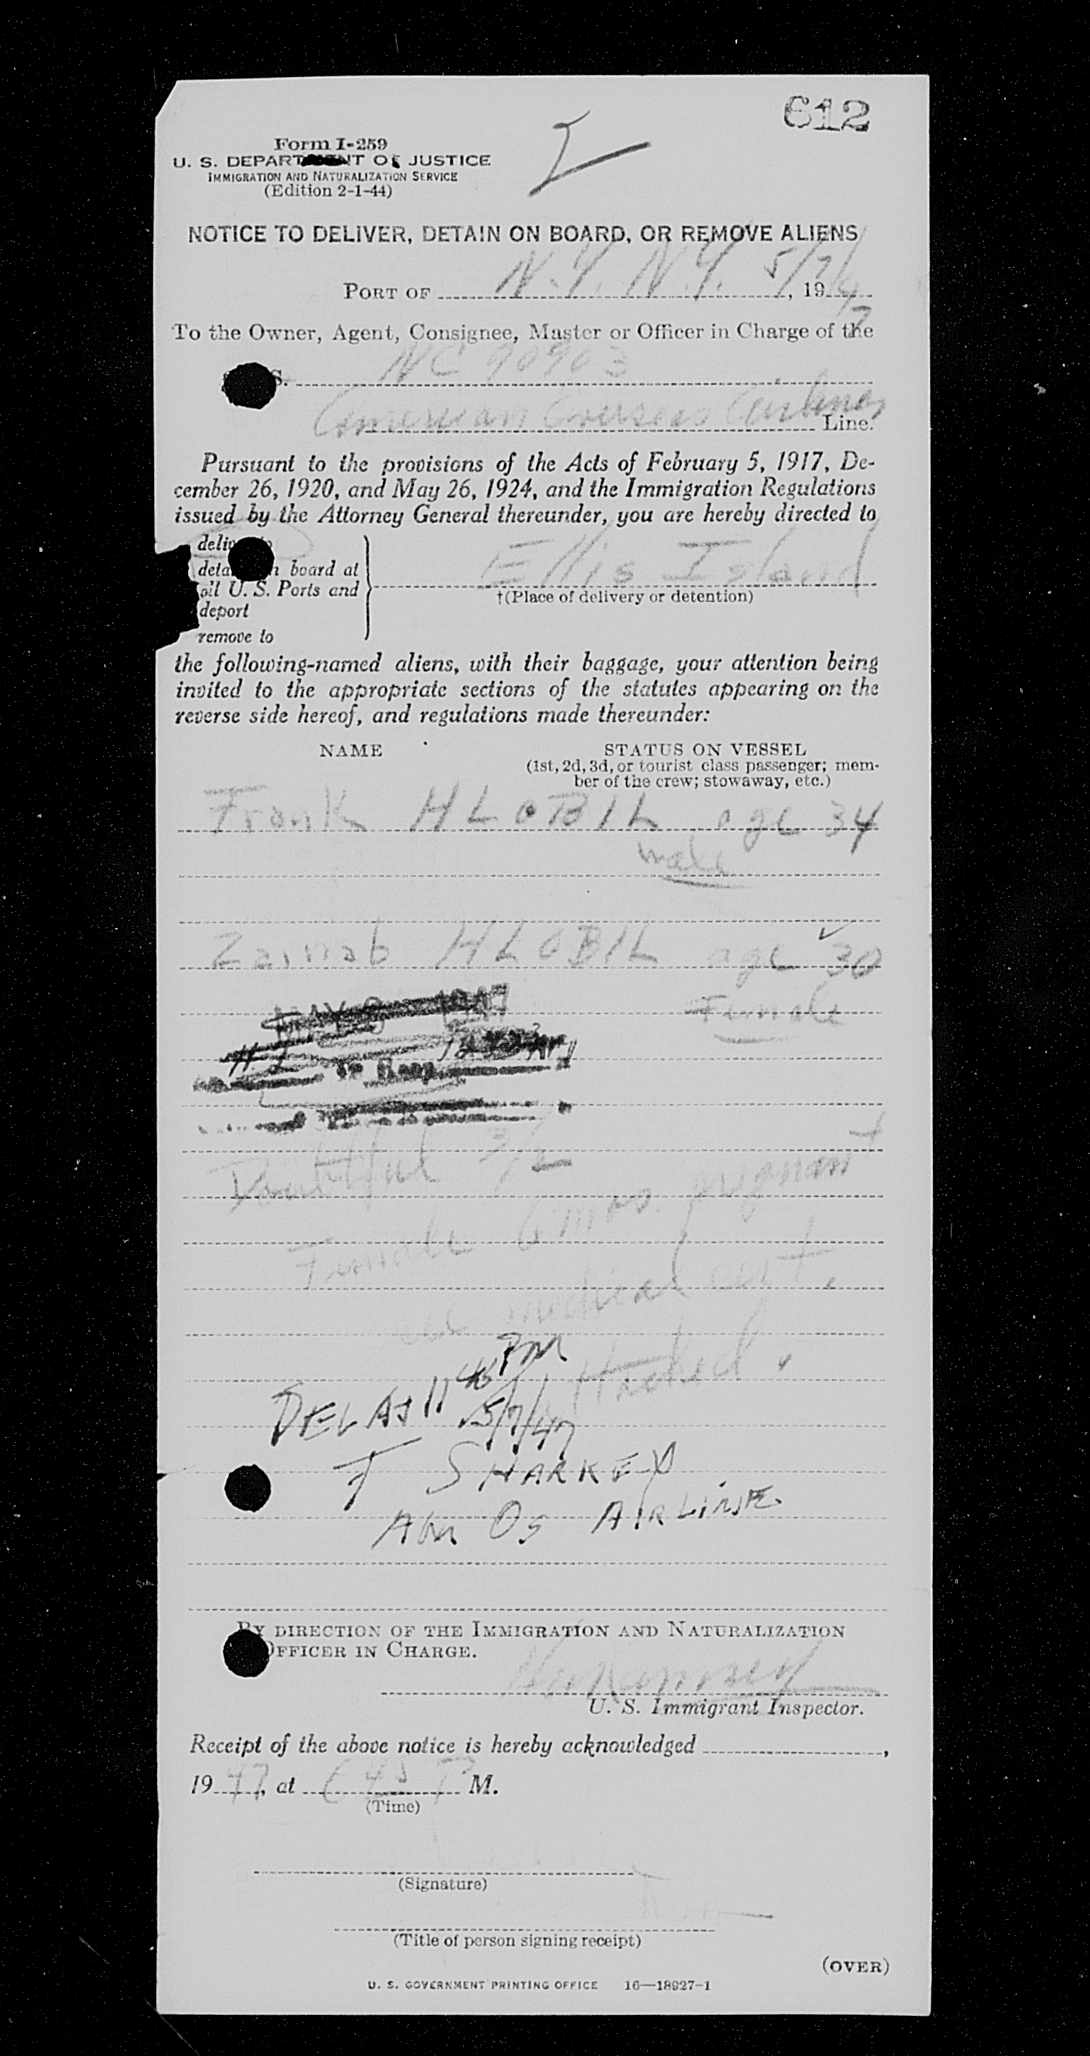 612
Form I-259
U. S. DEPARTMENT OF JUSTICE
IMMIGRATION AND NATURALIZATION SERVICE
(Edition 2-1-44)
NOTICE TO DELIVER, DETAIN ON BOARD, OR REMOVE ALIENS
PORT OF N.Y. N.Y. 5/7/, 1947
To the Owner, Agent, Consignee, Master or Officer in Charge of the
S. NC 90903
American Overseas Airlines Line.
Pursuant to the provisions of the Acts of February 5, 1917, De-
cember 26, 1920, and May 26, 1924, and the Immigration Regulations
issued by the Attorney General thereunder, you are hereby directed to
deliver to
detain on board at
all U. S. Ports and
deport
remove to
Ellis Island
†(Place of delivery or detention)
the following-named aliens, with their baggage, your attention being
invited to the appropriate sections of the statutes appearing on the
reverse side hereof, and regulations made thereunder:
NAME STATUS ON VESSEL
(1st, 2d, 3d, or tourist class passenger; mem-
ber of the crew; stowaway, etc.)
Frank HLOBIL age 34
male
Zainab HLOBIL age 30
Female
Doubtful 3/2
Female 6 mos. pregnant
medical cert.
attached.
DEL AT 11 45 PM
5/7/47
F SHARKEY
AM OS AIRLINE.
BY DIRECTION OF THE IMMIGRATION AND NATURALIZATION
OFFICER IN CHARGE.
U. S. Immigrant Inspector.
Receipt of the above notice is hereby acknowledged ,
1947, at 6 45 P M.
(Time)
(Signature)
(Title of person signing receipt)
(OVER)
U. S. GOVERNMENT PRINTING OFFICE 16—18927-1